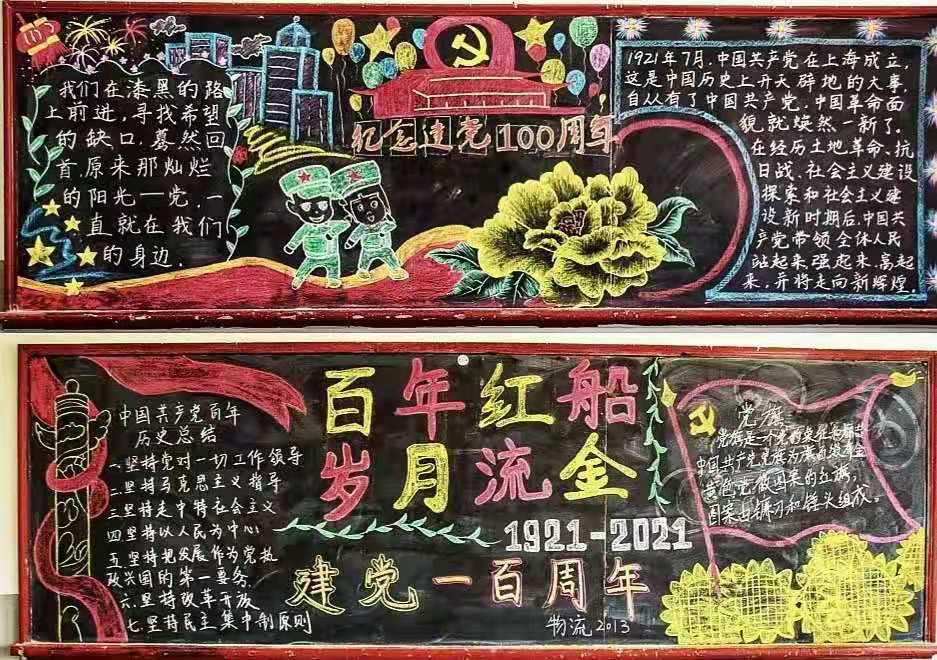 我们在漆黑的路
上前进，寻找希望
的缺口，蓦然回
首，原来那灿烂
的阳光—党，一
直就在我们
的身边.
纪念建党100周年
1921年7月，中国共产党在上海成立，
这是中国历史上开天辟地的大事，
自从有了中国共产党，中国革命面
貌就焕然一新了.
在经历土地革命、抗
日战、社会主义建设
探索和社会主义建
设新时期后，中国共
产党带领全体人民
站起来、强起来、富起
来，并将走向新辉煌.
中国共产党百年
历史总结
一.坚持党对一切工作领导
二.坚持马克思主义指导
三坚持走中特社会主义
四坚持以人民为中心
五坚持把发展作为党执
政兴国的第一要务.
六.坚持改革开放
七.坚持民主集中制原则
百年红船
岁月流金
1921-2021
建党一百周年
物流2013
党旗
党旗是一个党的象征和标志
中国共产党党旗为旗面缀有金
黄色党徽图案的红旗，
图案由镰刀和锤头组成。